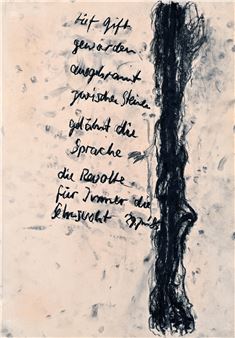 Gift
geworden
ausgebrannt
zwischen Steinen
gelähmt die
Sprache
die Revolte
für Immer die
Sehnsucht